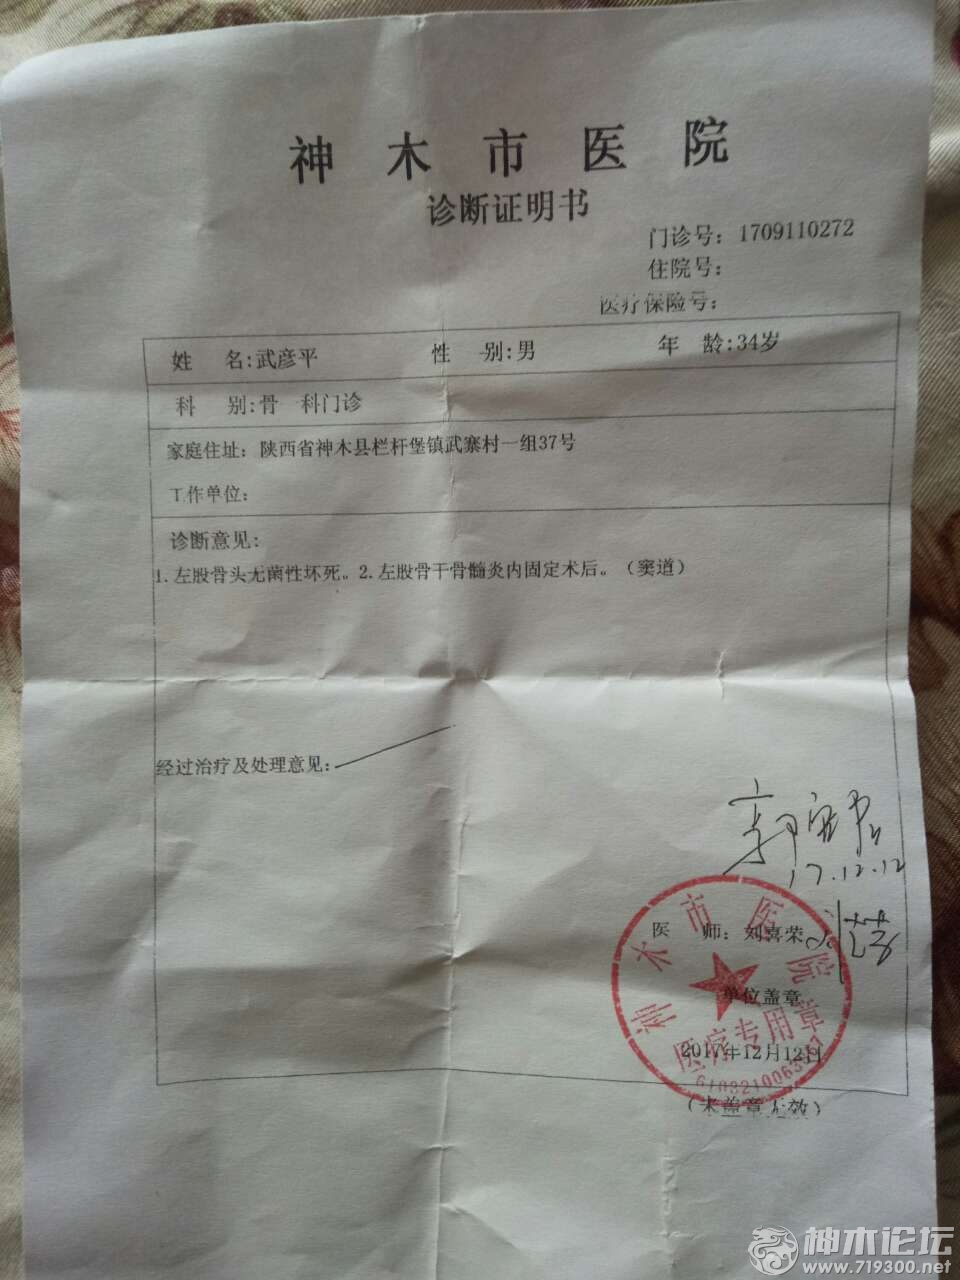 神木市医院
诊断证明书
门诊号：1709110272
住院号：
医疗保险号：
姓 名:武彦平 性 别:男 年 龄:34岁
科 别:骨 科门诊
家庭住址：陕西省神木县栏杆堡镇武寨村一组37号
工作单位：
诊断意见:
1.左股骨头无菌性坏死。2.左股骨干骨髓炎内固定术后。（窦道）
经过治疗及处理意见：
17.12.12
医 师：刘喜荣
单位盖章
2017年12月12日
（未盖章无效）
神木市医院
医疗专用章
神木论坛
www.719300.net